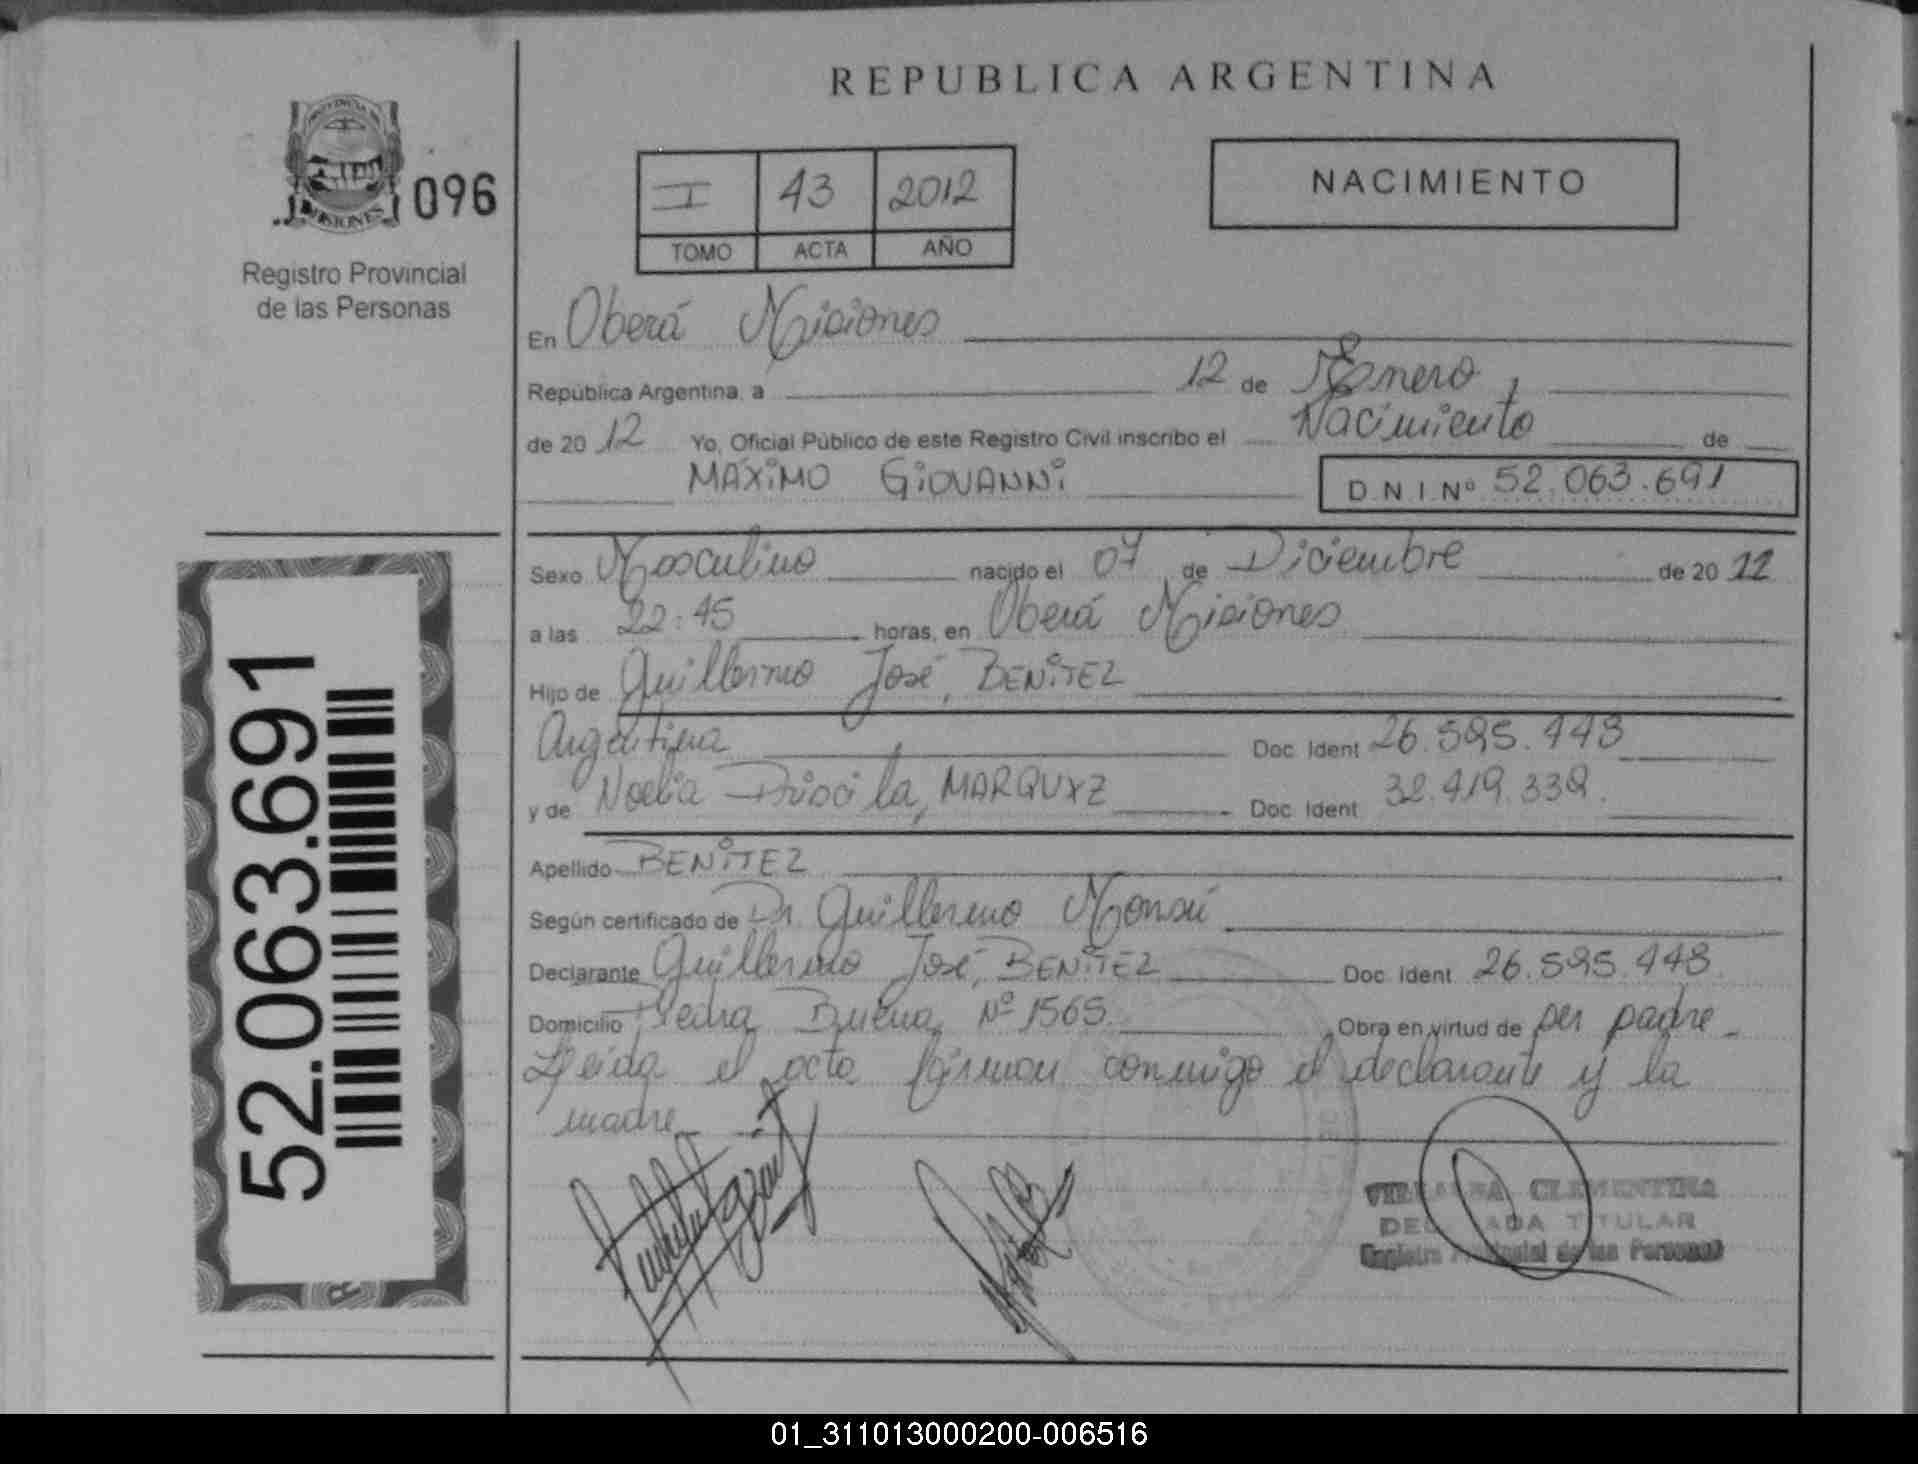 REPUBLICA ARGENTINA
096
Registro Provincial
de las Personas
I 43 2012
TOMO ACTA AÑO
NACIMIENTO
En Oberá Misiones
República Argentina, a 12 de Enero
de 2012 Yo, Oficial Público de este Registro Civil inscribo el Nacimiento de
MÁXIMO GIOVANNI
D.N.I.Nº 52.063.691
Sexo Masculino nacido el 07 de Diciembre de 20
a las 22:45 horas, en Oberá Misiones
Hijo de Guillermo José, BENITEZ
Argentina Doc. Ident 26.595.448
y de Noelia Priscila, Doc. Ident 32.419.339.
Apellido BENITEZ
Según certificado de Dr. Guillermo
Declarante Guillermo José, BENITEZ Doc. Ident. 26.595.448.
Domicilio Piedra Buena Nº 1565. Obra en virtud de ser padre
Leida el acta firman conmigo el declarante y la
madre
CLEMENTINA
TITULAR
Registro Provincial de las Personas
52.063.691
01_311013000200-006516